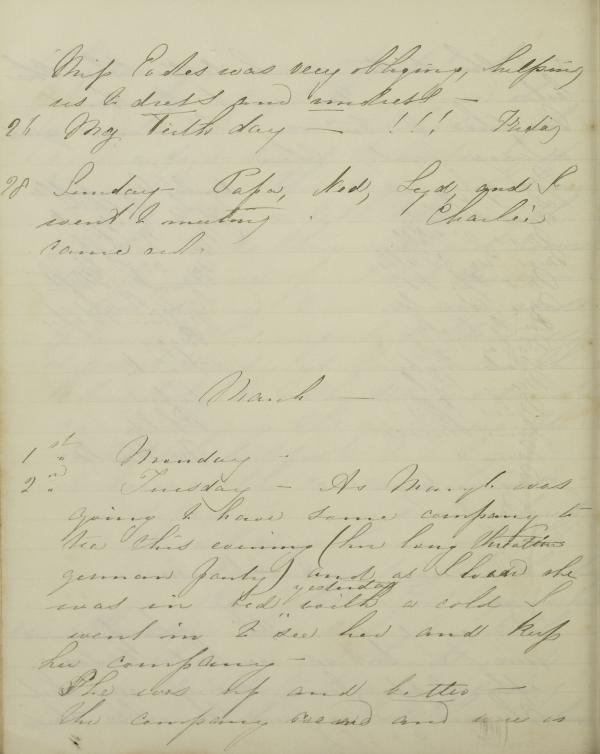 Miss Eades was very obliging, helping
us to dress and undress —
26 My Birth day — !!! Friday
28 Sunday — Papa, Ned, Lyd, and I
went to meeting. Charlie
came out.
March —
1st Monday —
2nd Tuesday — As Mary L was
going to have some company to
tea this evening (her long
german party) and as I heard she
was in bed yesterday with a cold I
went in to see her and keep
her company —
She was up and better —
the company and